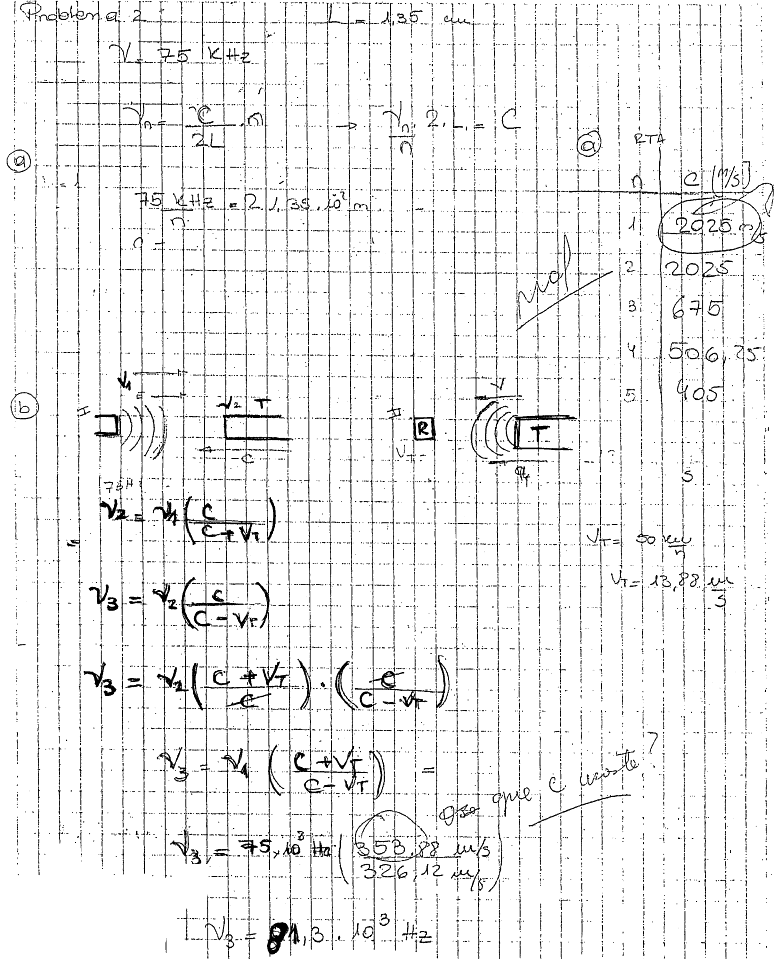 Problema 2 L = 1,35 cm
ν = 75 KHz
νn = C/2L · n → νn/n · 2 · L = C
a
75 KHz/n = 2 1,35 · 10² m
n =
a RTA
n C [m/s]
1 2025 m/s
2 2025
3 675
4 506,25
5 405
mal
5
b
I ν1 ν2 T C
II R VT V T
ν2 = ν1 (C / C + VT)
VT = 50 km/h
VT = 13,88 m/s
=
ν3 = ν2 (C / C - VT)
ν3 = ν2 (C + VT / C) · (C / C - VT)
ν3 = ν1 (C + VT / C - VT) =
que C usaste?
ν3 = 75,10³ Hz (353,88 m/s / 326,12 m/s)
ν3 = 81,3 · 10³ Hz